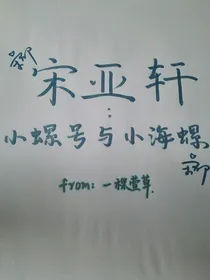 宋亚轩
小螺号与小海螺
from: 一棵萱草.